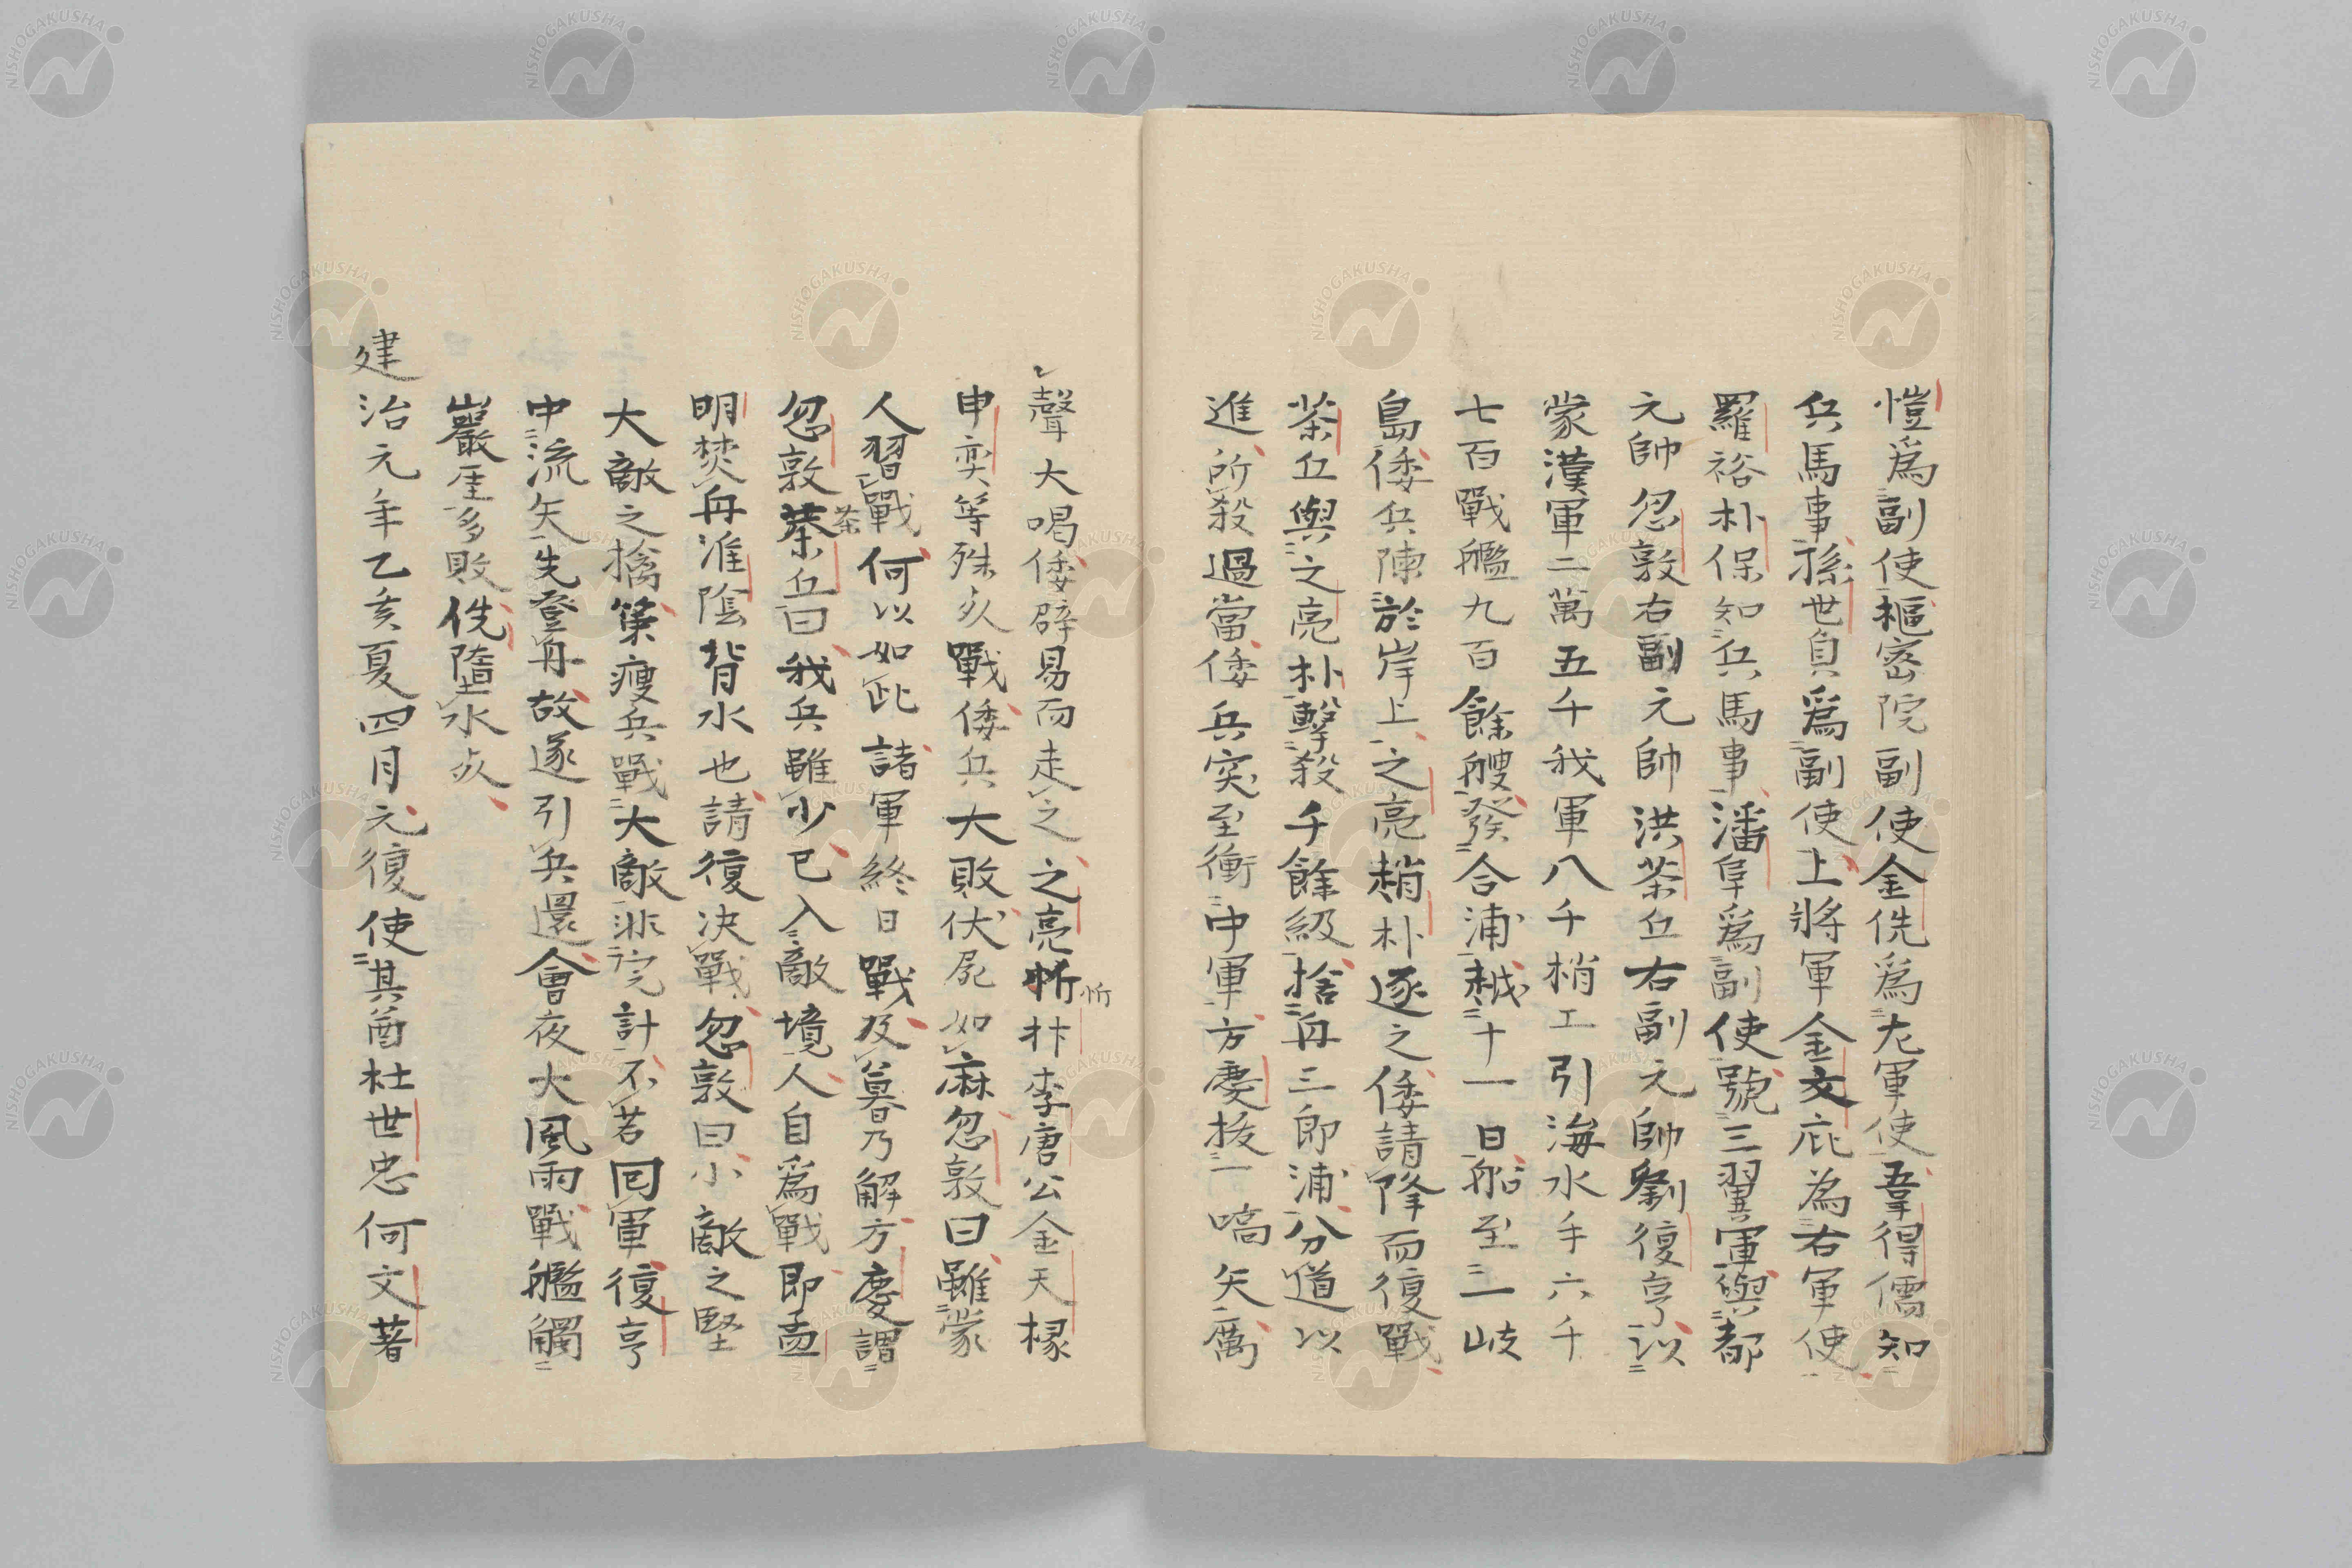 愷爲副使樞密院副使金侁爲左軍使韋得儒知
兵馬事孫世貞爲副使上將軍金文庇為右軍使
羅裕朴保知兵馬事潘阜爲副使號三翼軍與都
元帥忽敦右副元帥洪茶丘右副元帥劉復亨以
蒙漢軍二萬五千我軍八千梢工引海水手六千
七百戰艦九百餘艘發合浦越十一日船至一岐
島倭兵陳於岸上之亮趙朴逐之倭請降而復戰
茶丘與之亮朴擊殺千餘級捨舟三郎浦分道以
進所殺過當倭兵突至衝中軍方慶拔一嗃矢厲
聲大喝倭辟易而走之之亮忻抃李唐公金天椽
忻
申奕等殊死戰倭兵大敗伏屍如麻忽敦曰雖蒙
人習戰何以如此諸軍終日戰及暮乃解方慶謂
忽敦茶丘曰我兵雖少已入敵境人自爲戰即孟
茶
明焚舟淮陰背水也請復决戰忽敦曰小敵之堅
大敵之擒策瘦兵戰大敵非完計不若回軍復亨
中流矢先登舟故遂引兵還會夜大風雨戰艦觸
巖厓多敗侁墮水死
建治元年乙亥夏四月元復使其酋杜世忠何文著
NISHOGAKUSHA